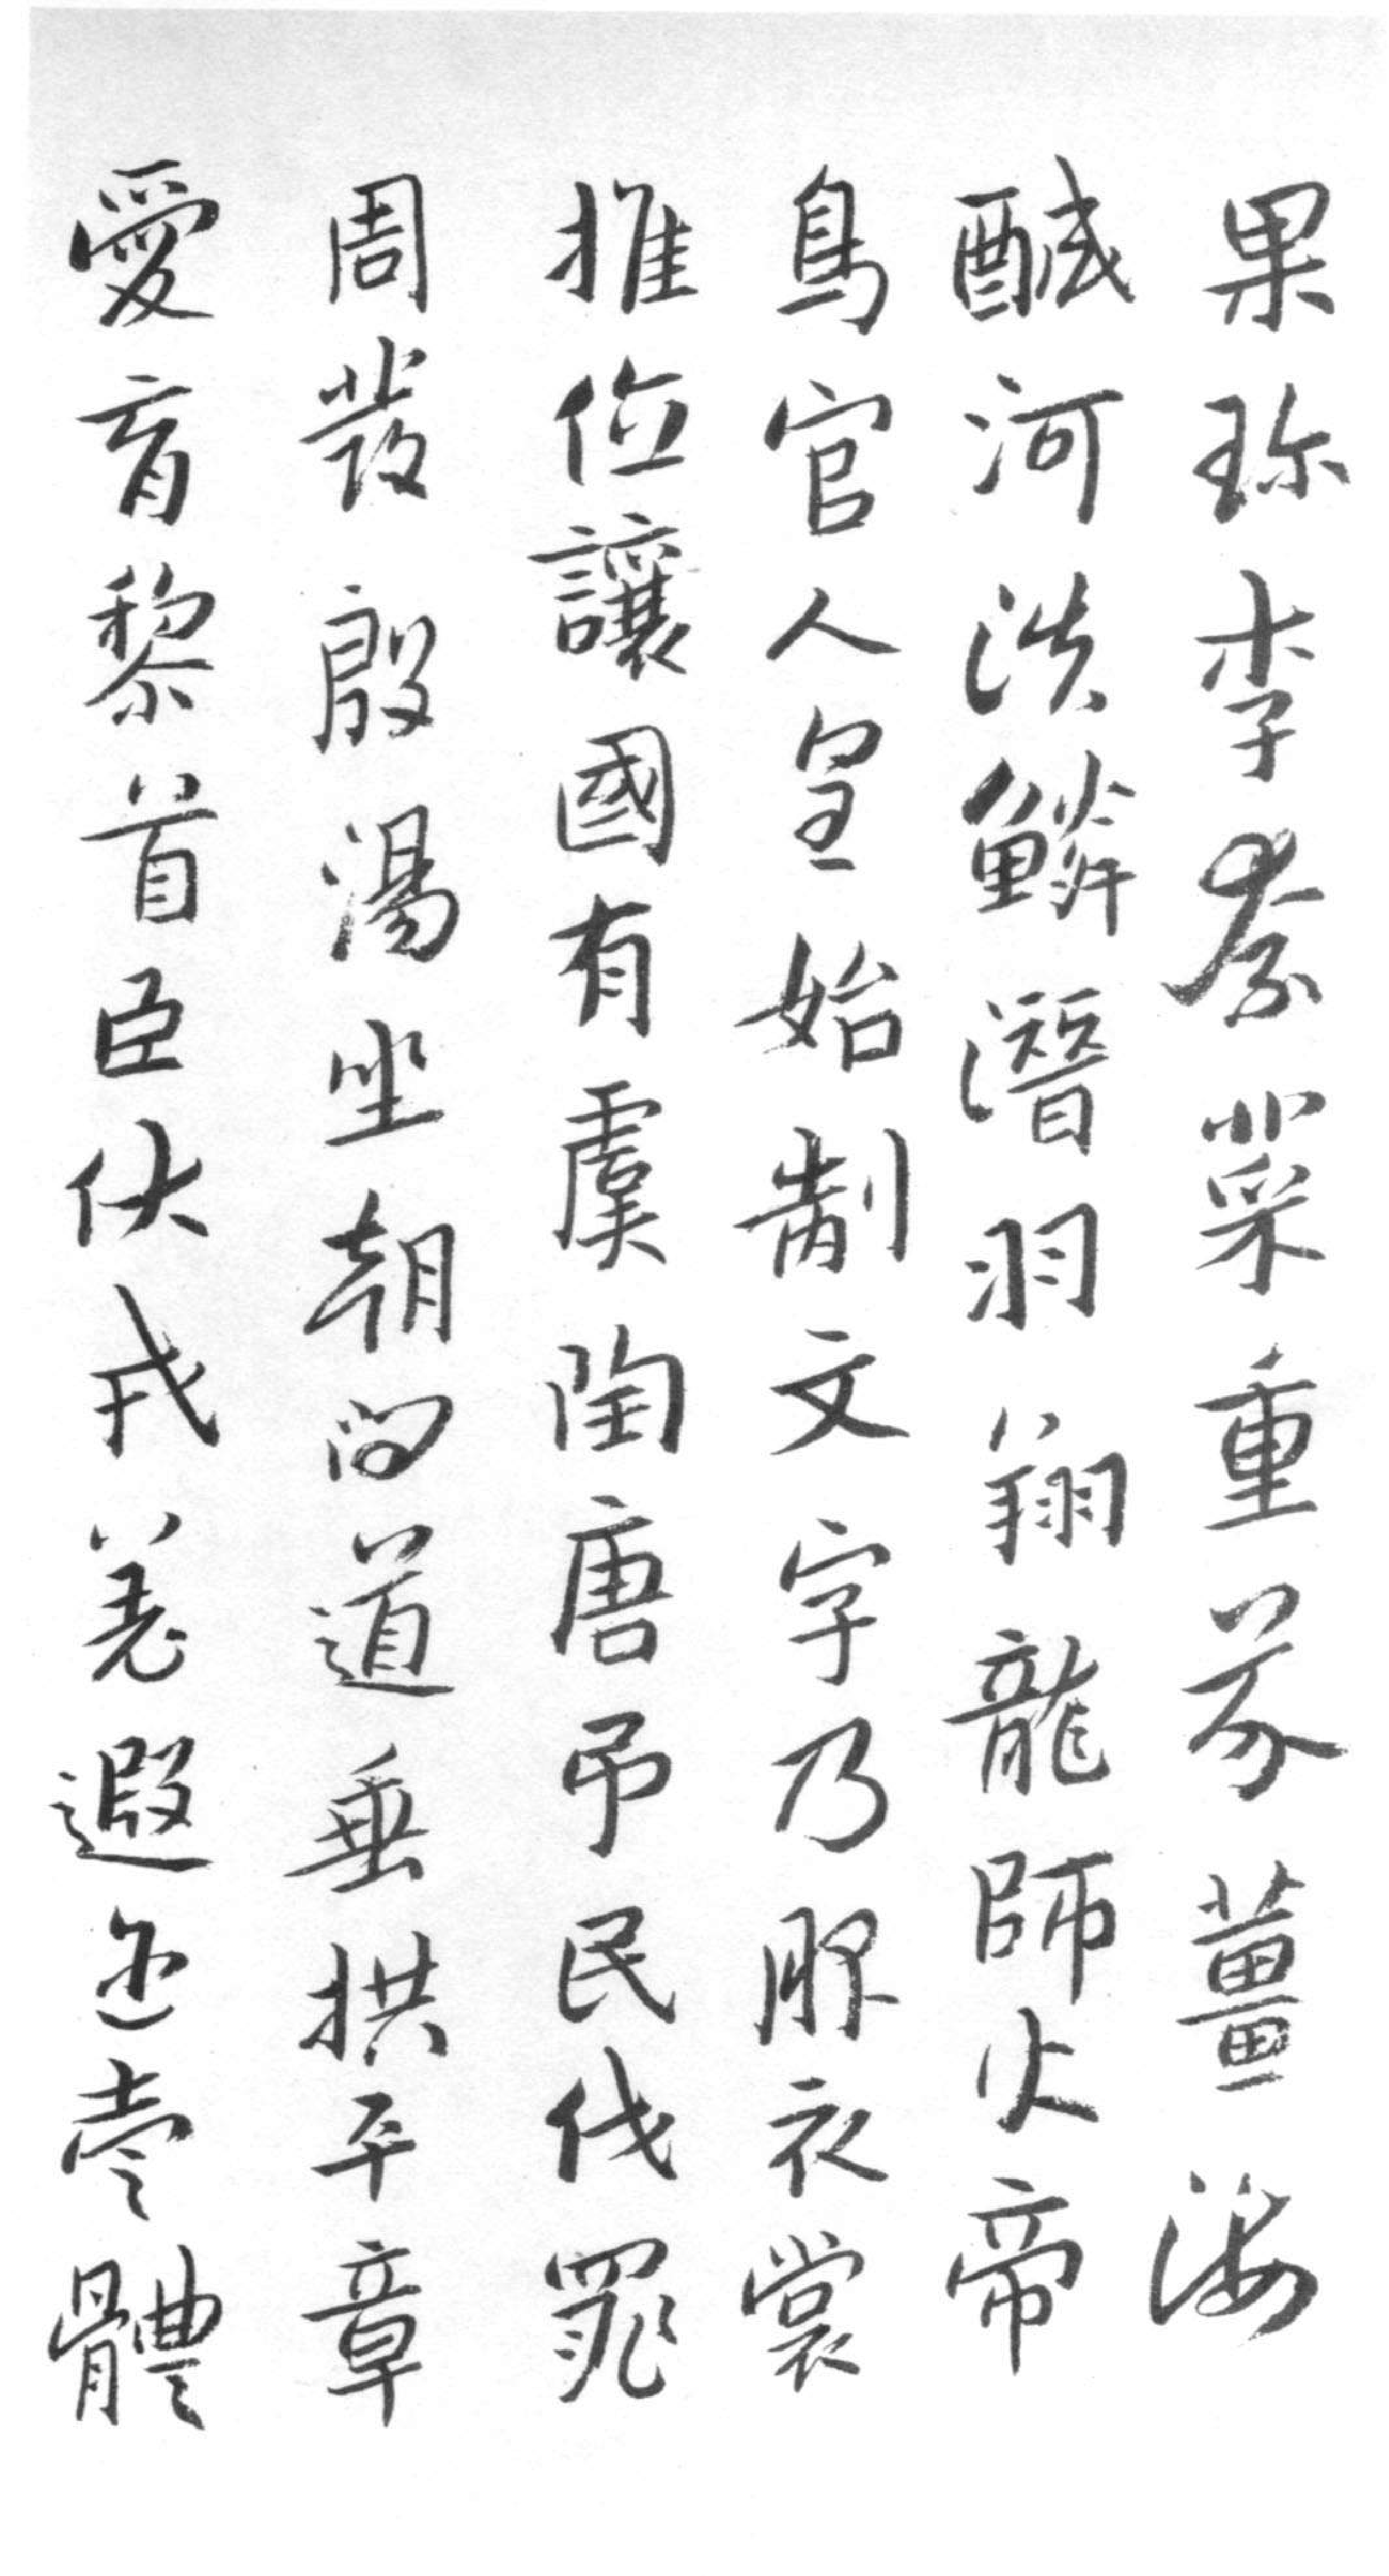 果珎李柰菜重芥薑海
醎河淡鱗潛羽翔龍師火帝
鳥官人皇始制文字乃服衣裳
推位讓國有虞陶唐弔民伐罪
周發殷湯坐朝問道垂拱平章
愛育黎首臣伏戎羌遐迩壹體